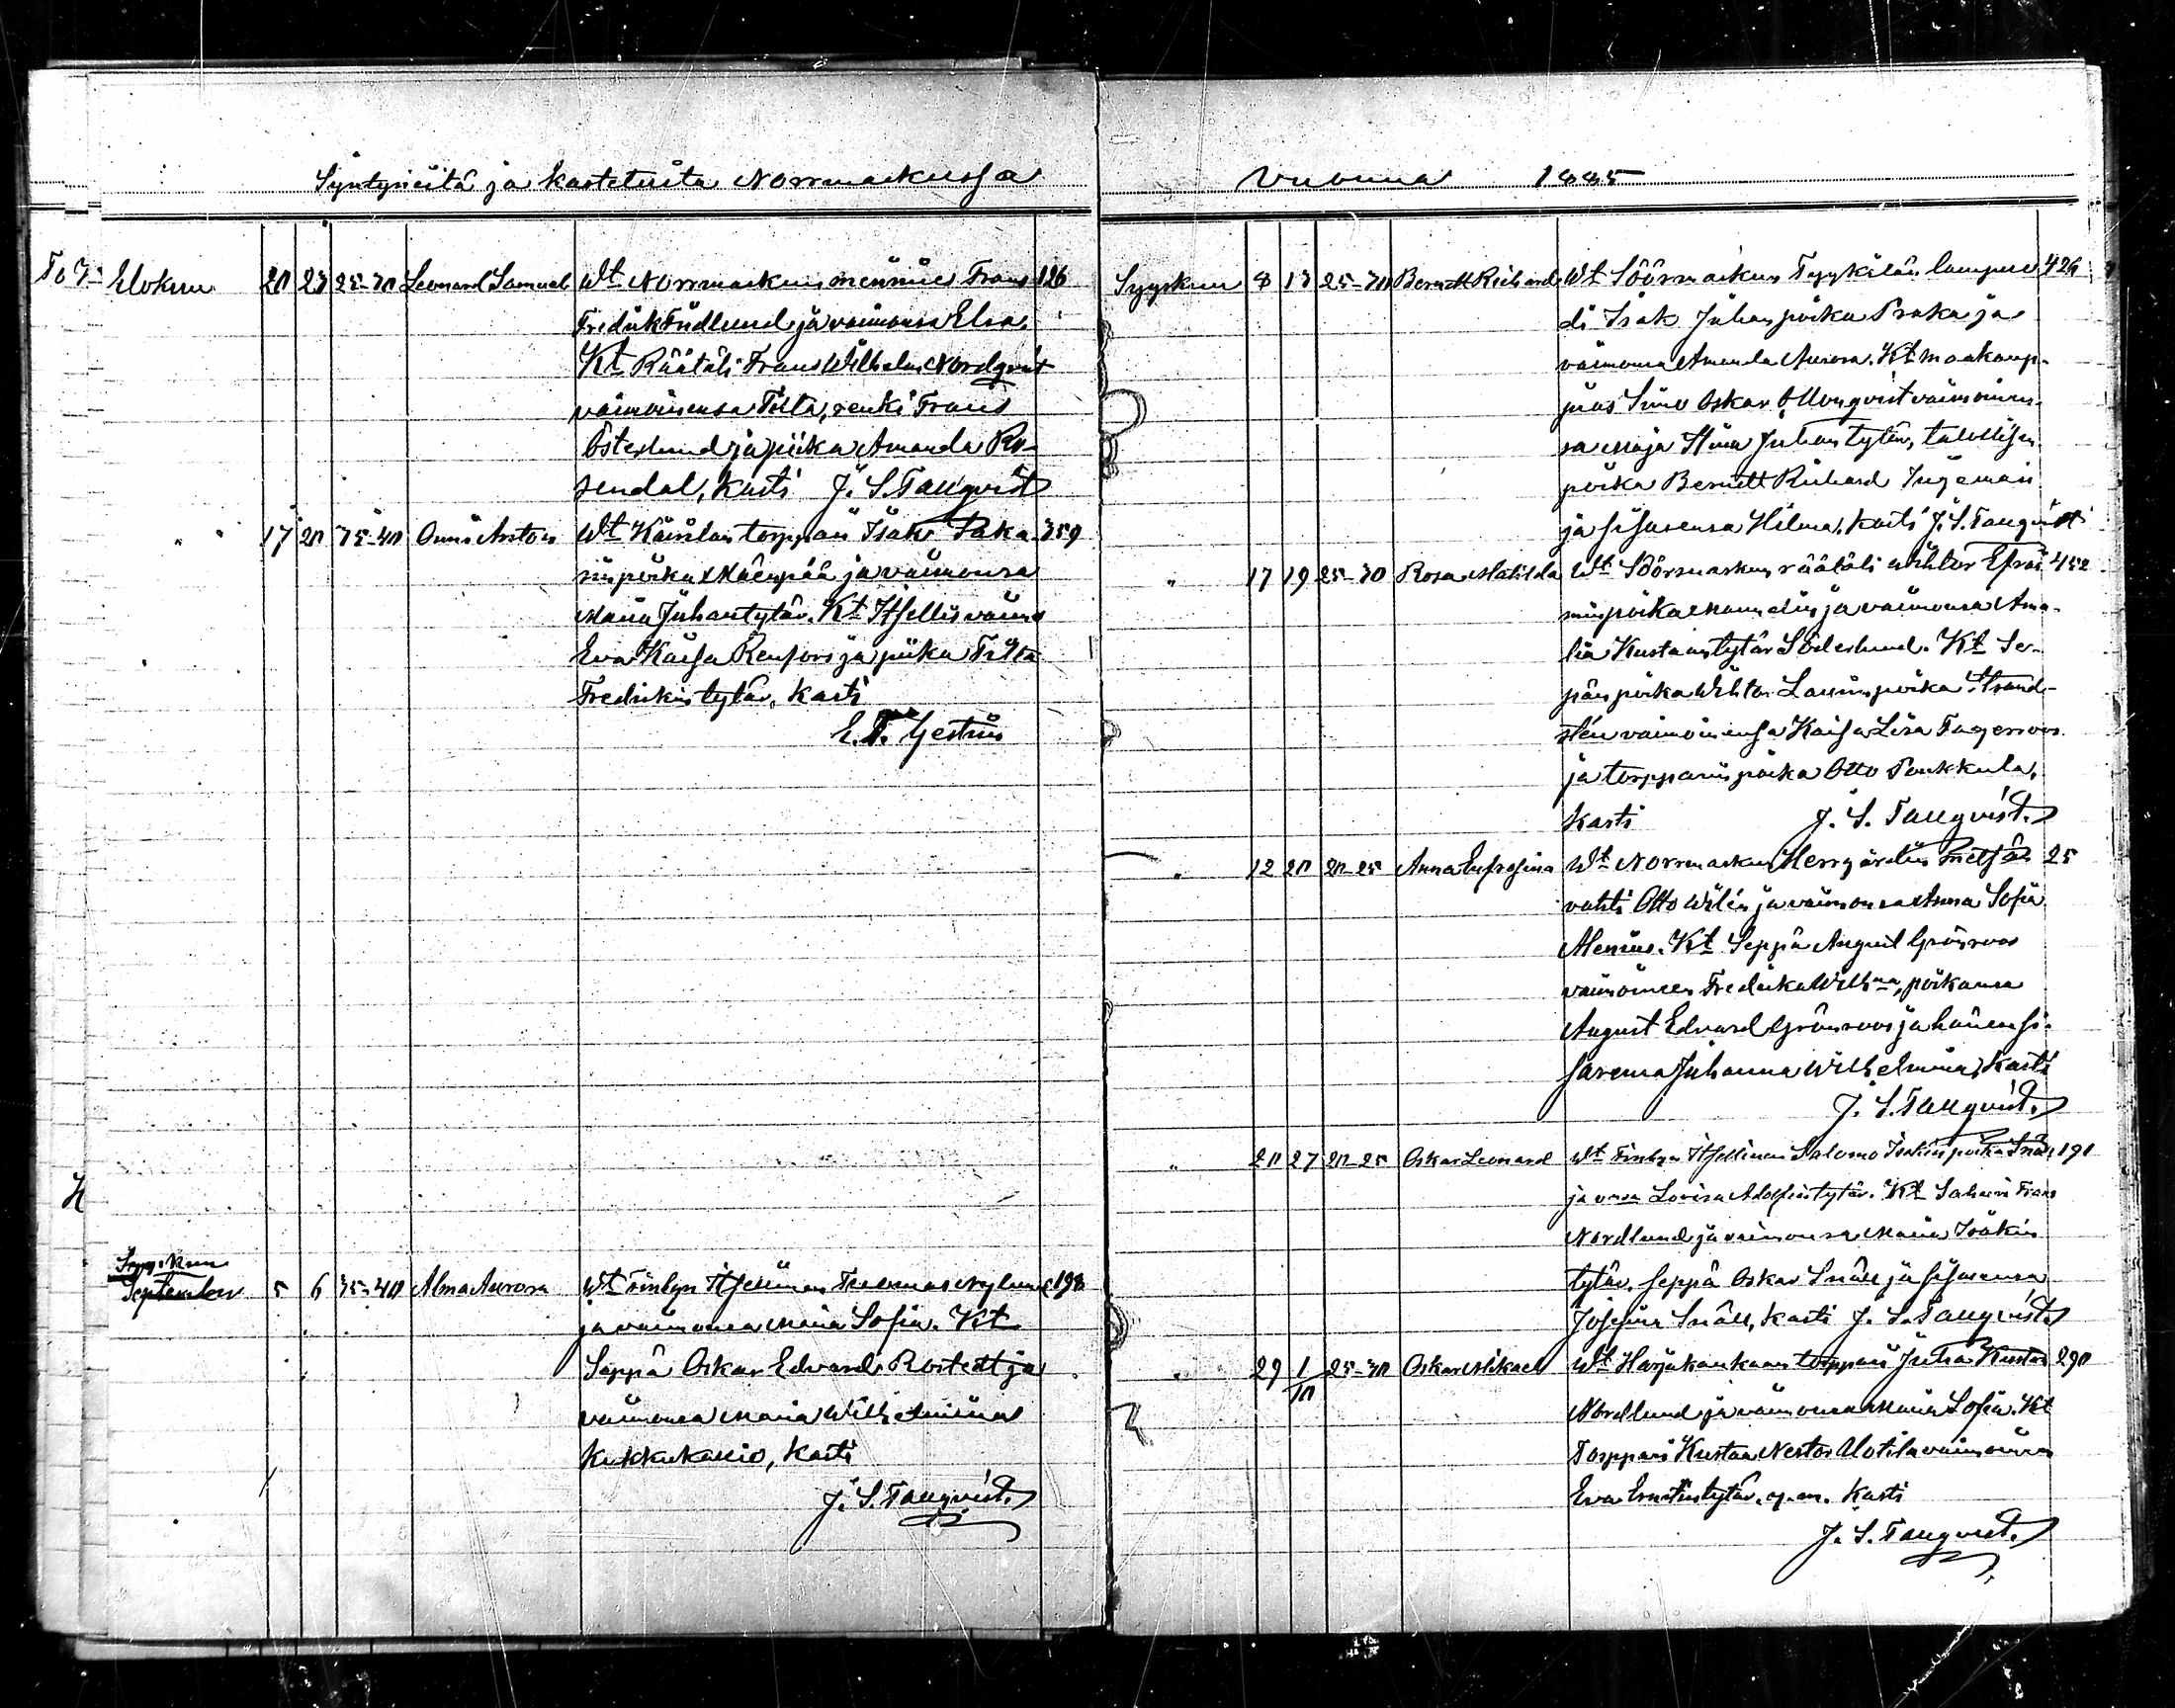 Syntyneitä ja kastetuita Norrmarkussa
To 7.
Elokuu 20 23 25-30 Leonard Samuel Wt Norrmarkun Frans 126
Fredrik Fridlund ja vaimonsa Elsa.
Kt Räätäli Frans Wilhelm Nordqvist
vaimoinensa Tilta, renki Frans
Österlund ja piika Amanda Ro-
sendal, kasti J. S. Tallqvist
" 17 20 35-40 Onni Anton Wt torppari Isak 359
ja vaimonsa
Maria Juhantytär. Kt Itsellis vaimo
Eva Kaisa Renfors ja piika Tilta
Fredrikin tytär, kasti
E. F. Gestrin
Syyskuu
September 5 6 35-40 Alma Aurora Wt Finbyn Itsellinen Tuomas Nylund 198
ja vaimonsa Maria Sofia. Kt
Seppä Oskar Edvard Rostedt ja
vaimonsa Maria Wilhelmiina
Kukkukallio, kasti
J. S. Tallqvist.
Vuonna 1885
Syyskuu 8 13 25-30 Berndt Richard Wt Söörmarkun Tyykilän lampuo 426
di Isak Juhanpoika Praka ja
vaimonsa Amanda Aurora. Kt maakaup-
pias Simo Oskar vaimoinen-
sa Maja Stina Juhantytär, talollisen
poika Berndt Richard Ingeman
ja sisarensa Hilma. kasti J. S. Tallqvist
" 17 19 25-30 Rosa Matilda Wt Söörmarkun räätäli Wihtor Efrai 452
minpoika ja vaimonsa Ama-
lia Kustaantytär Söderlund. Kt Se-
pän poika Wihtor Laurinpoika Strand-
stén vaimoinensa Kaisa Lisa Fagerroos
ja torpparin poika Otto Poukkula,
kasti J. S. Tallqvist.
" 12 20 20-25 Anna Eufrosina Wt Norrmarkun Herrgårdin metsän 25
vahti Otto Wilén ja vaimonsa Anna Sofia
Alenius. Kt Seppä August Grönroos
vaimoineen Fredrika Willna, poikansa
August Edvard Grönroos ja hänen si-
sarensa Juhanna Wilhelmina, kasti
J. S. Tallqvist.
" 20 27 20-25 Oskar Leonard Wt Finbyn Itsellinen Salomo Isakinpoika Snäll 191
ja vmsa Lovisa Adolfintytär. Kt Sahuri Frans
Nordlund ja vaimonsa Maria Isakin
tytär, seppä Oskar Snäll ja sisarensa
Josefina Snäll, kasti J. S. Tallqvist.
" 29 1/10 25-30 Oskar Mikael Wt Harjakankaan torppari Juha Kustaa 290
Nordlund ja vaimonsa Maria Sofia. Kt
Torppari Kustaa Nestor Uotila vaimoineen
Eva Ernstintytär. y. m. kasti
J. S. Tallqvist.